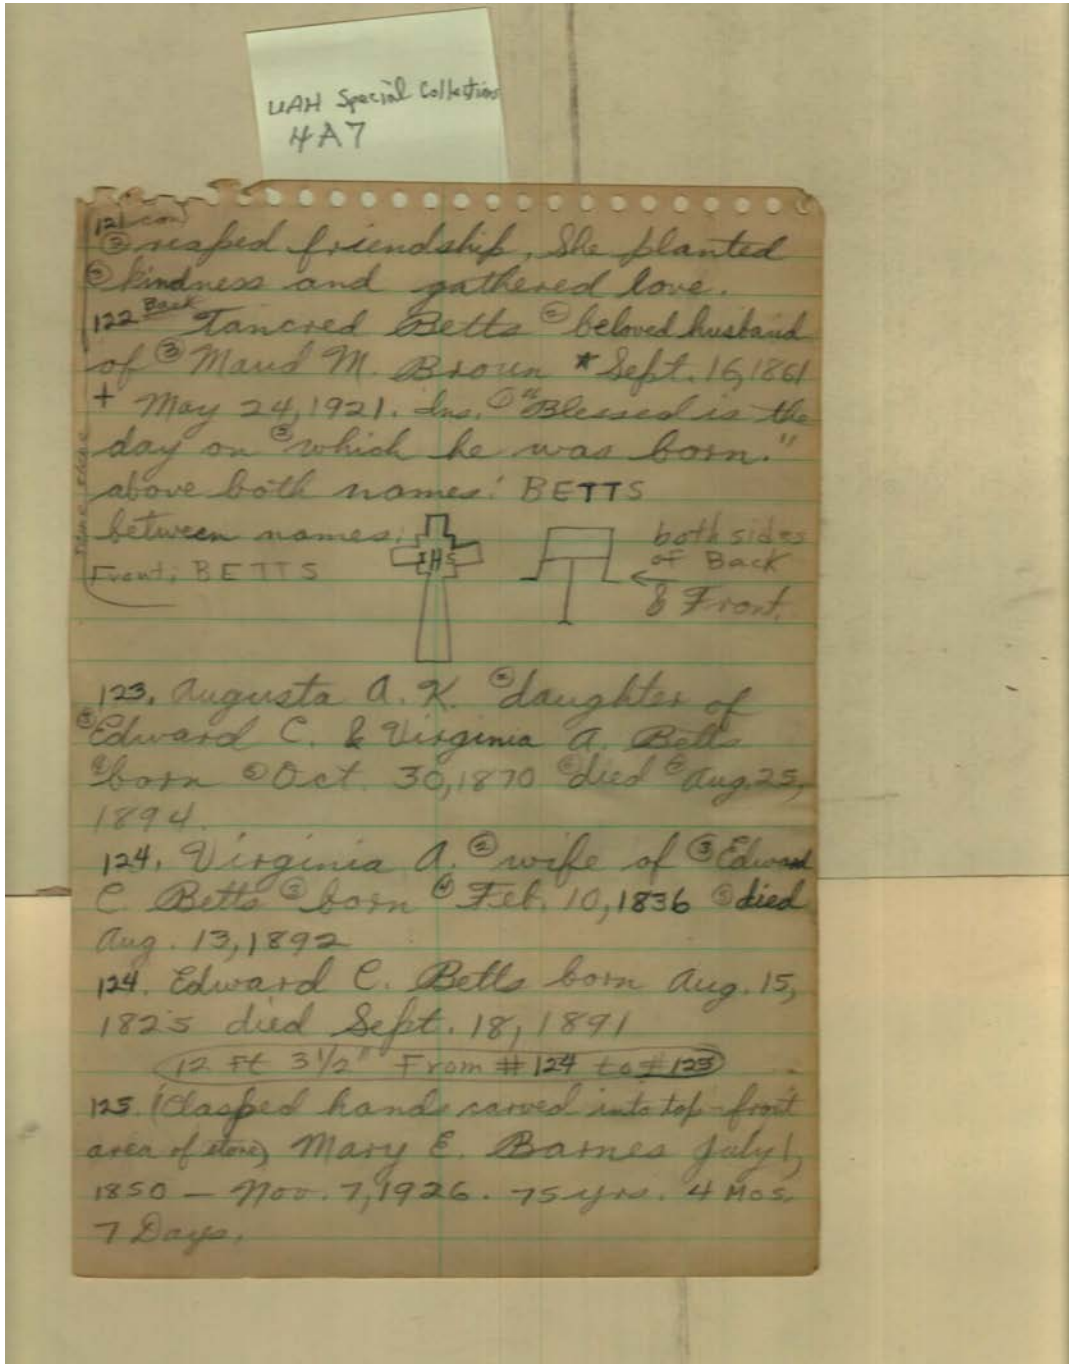 UAH Special Collections
4A7
121 con
③ reaped friendship, She planted
③ kindness and gathered love.
122 Back Tancred Betts ② beloved husband
of ③ Maud M. Broun * Sept. 16, 1861
+ May 24, 1921. Ins. ① "Blessed is the
day on ② which he was born."
above both names: BETTS
between names:
IHS
both sides
of Back
& Front.
Front: BETTS
same stone
123. Augusta A. K. ② daughter of
③ Edward C. & Virginia A. Betts
④ born ⑤ Oct. 30, 1870 ⑥ died ⑦ Aug. 25,
1894.
124. Virginia A. ② wife of ③ Edward
C. Betts ③ born ④ Feb. 10, 1836 ⑤ died
Aug. 13, 1892
124. Edward C. Betts born Aug. 15,
1825 died Sept. 18, 1891
12 ft 3 1/2" From # 124 to # 125
125. (Clasped hands carved into top-front
area of stone) Mary E. Barnes July 1,
1850 – Nov. 7, 1926. 75 yrs. 4 Mos.
7 Days.